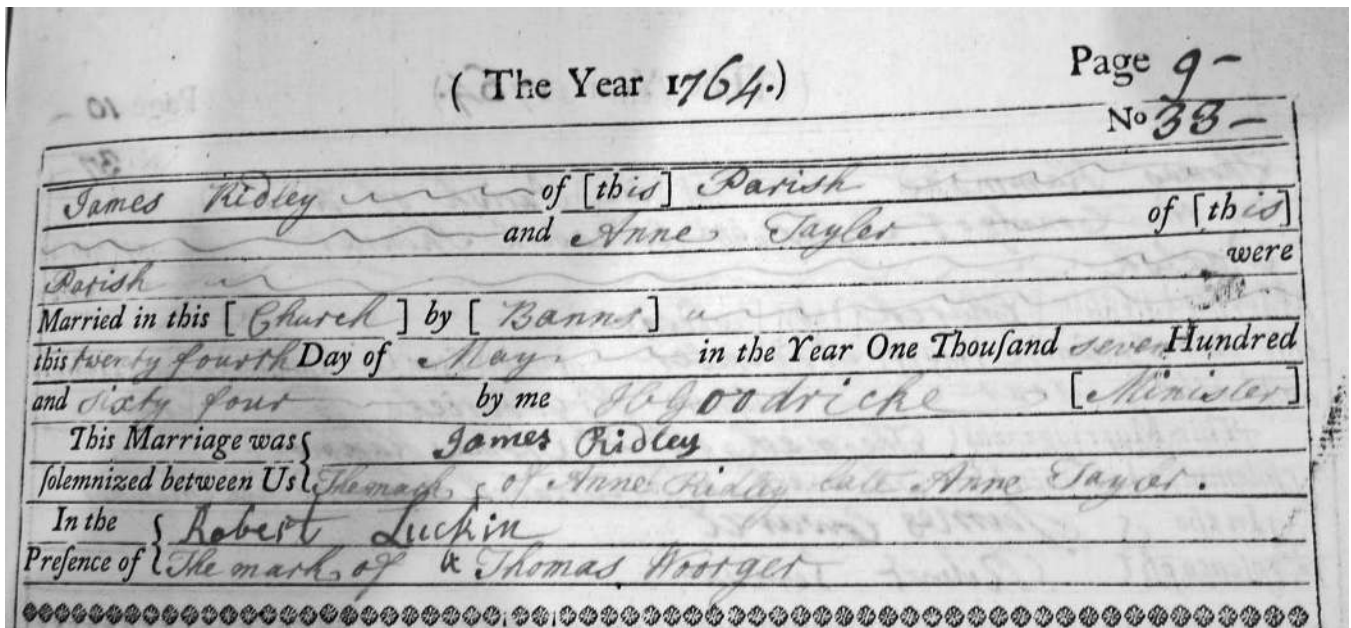 ( The Year 1764.)
Page 9 -
No 33 -
James Ridley of [this] Parish
and Anne Tayler of [this]
Parish were
Married in this [ Church ] by [ Banns ]
this twenty fourth Day of May in the Year One Thouſand seven Hundred
and sixty four by me Goodricke [Minister]
This Marriage was { James Ridley
ſolemnized between Us { The mark of Anne Ridley late Anne Tayler.
In the { Robert Luckin
Preſence of { The mark of Thomas Woorger